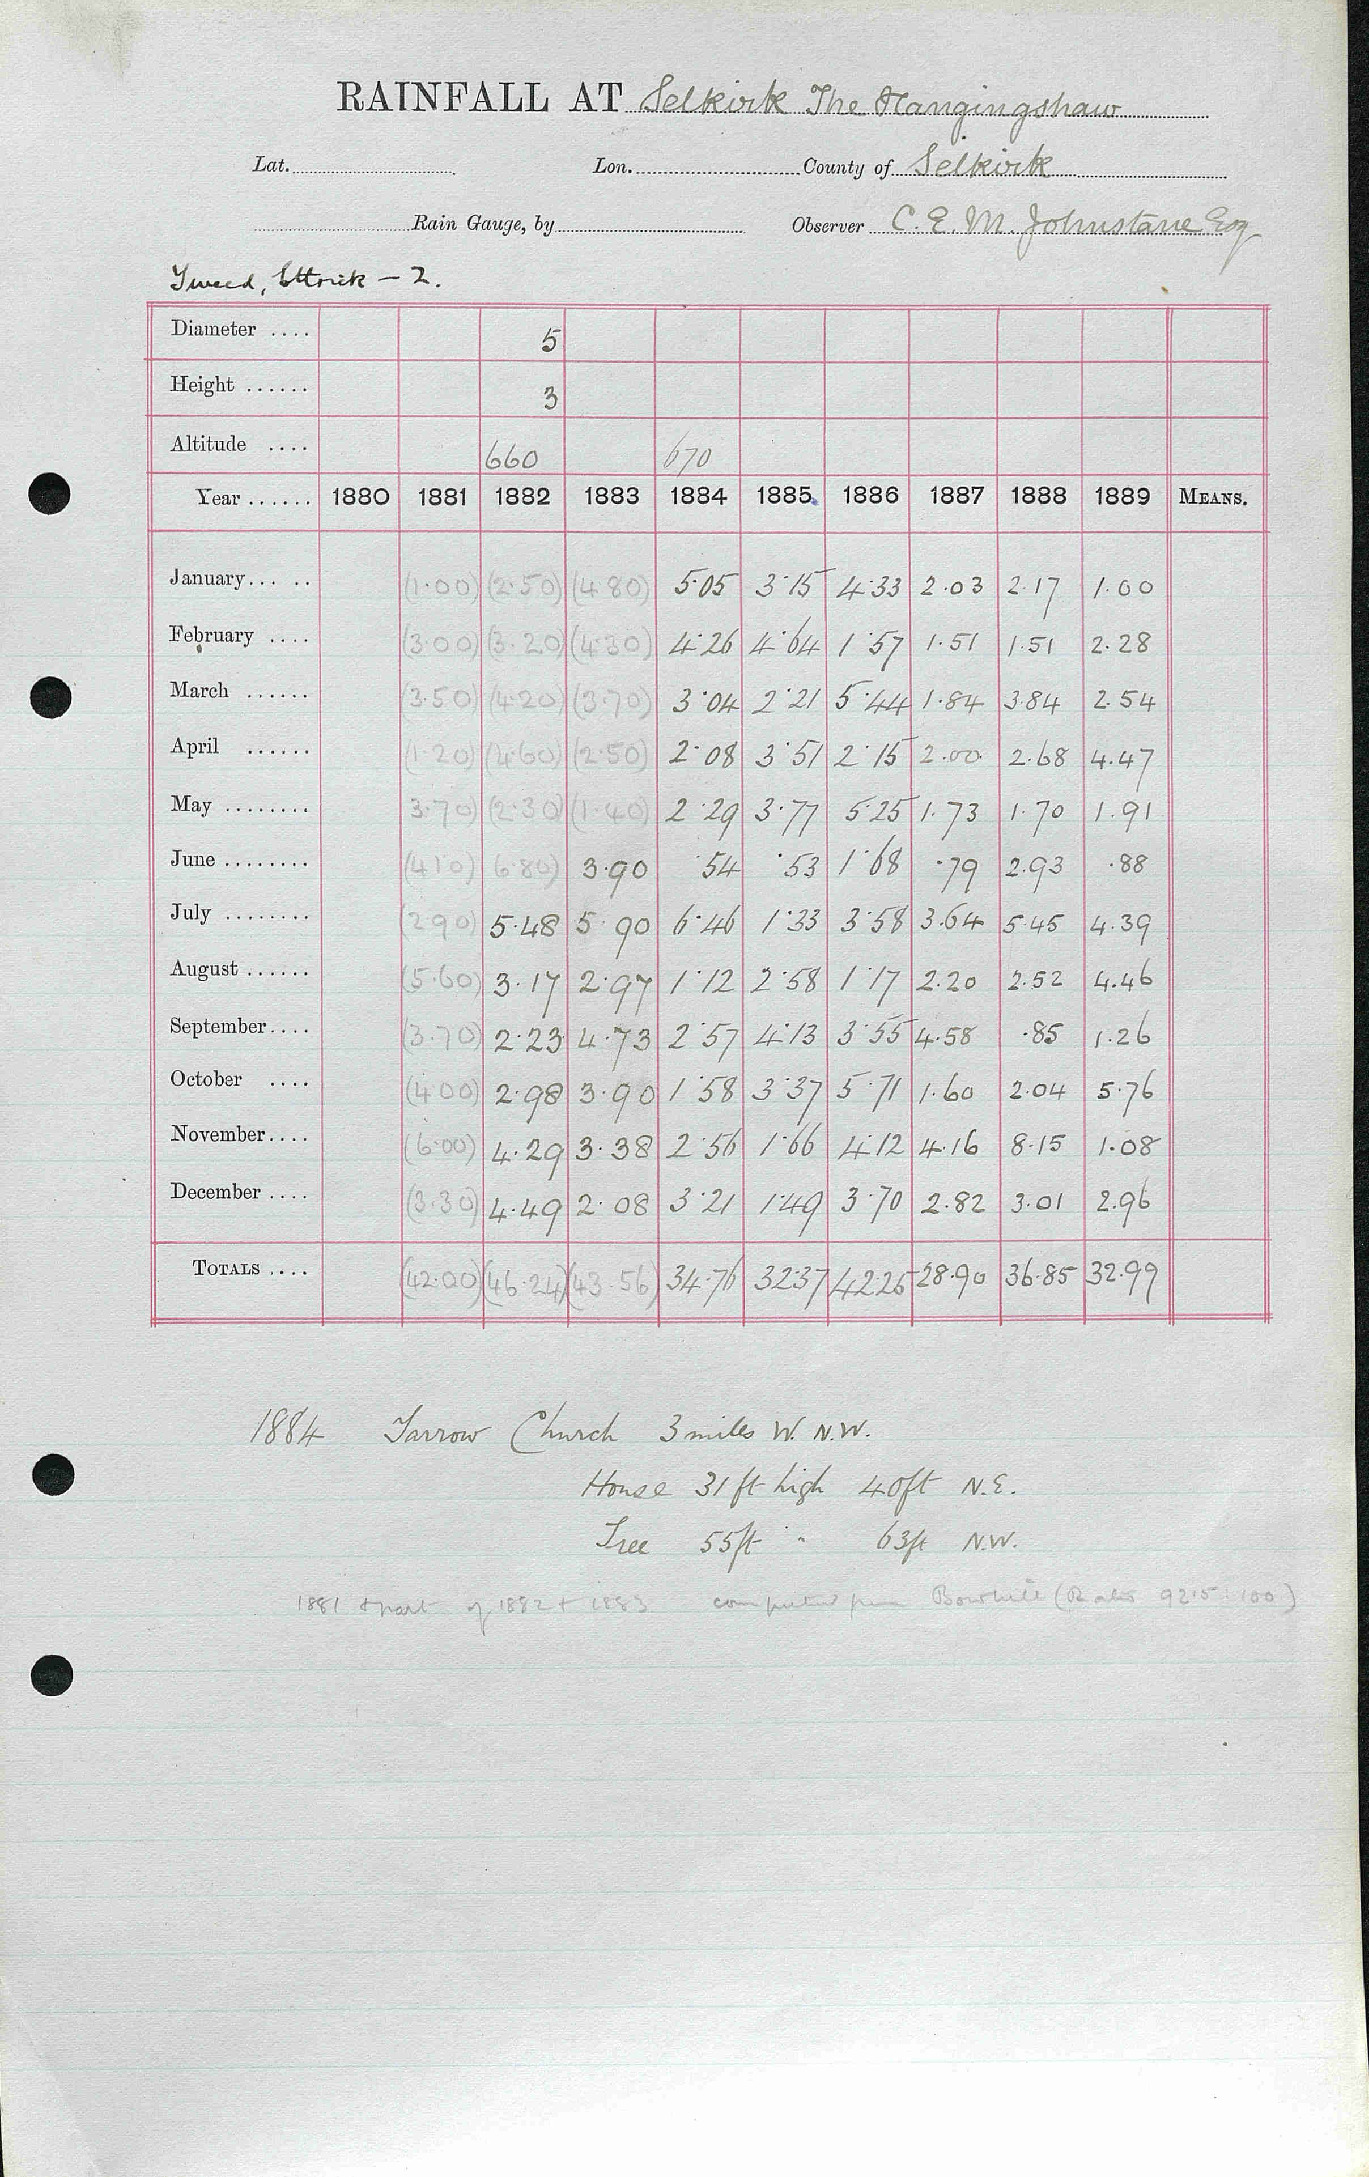 RAINFALL AT Selkirk The Hangingshaw
Lat. Lon. County of Selkirk
Rain Gauge, by Observer C. E. M. Johnstone Esq
Tweed, Ettrick – 2.
Diameter .... 5
Height ...... 3
Altitude .... 660 670
Year ...... 1880 1881 1882 1883 1884 1885 1886 1887 1888 1889 MEANS.
January... .. (1·00) (2·50) (4·80) 5·05 3·15 4·33 2·03 2·17 1·00
February .... (3·00) (3·20) (4·30) 4·26 4·64 1·57 1·51 1·51 2·28
March ...... (3·50) (4·20) (3·70) 3·04 2·21 5·44 1·84 3·84 2·54
April ...... (1·20) (4·60) (2·50) 2·08 3·51 2·15 2·00 2·68 4·47
May ........ 3·70) (2·30) (1·40) 2·29 3·77 5·25 1·73 1·70 1·91
June ........ (4·10) (6·80) 3·90 ·54 ·53 1·68 ·79 2·93 ·88
July ........ (2·90) 5·48 5·90 6·46 1·33 3·58 3·64 5·45 4·39
August ...... (5·60) 3·17 2·97 1·12 2·58 1·17 2·20 2·52 4·46
September.... (3·70) 2·23 4·73 2·57 4·13 3·55 4·58 ·85 1·26
October .... (4·00) 2·98 3·90 1·58 3·37 5·71 1·60 2·04 5·76
November.... (6·00) 4·29 3·38 2·56 1·66 4·12 4·16 8·15 1·08
December .... (3·30) 4·49 2·08 3·21 1·49 3·70 2·82 3·01 2·96
TOTALS .... (42·00) (46·24) (43·56) 34·76 32·37 42·25 28·90 36·85 32·99
1884 Yarrow Church 3 miles W. N.W.
House 31 ft high 40ft N.E.
Tree 55ft " 63ft N.W.
1881 & part of 1882 + 1883 computed from Bowhill (Ratio 92·5 : 100)